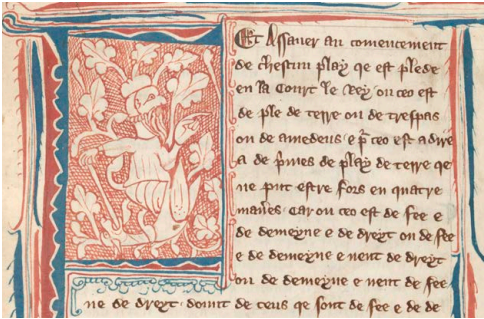 Et Assaver au comencement
de chescun play qe est plede
en la Court le Rey ou ceo est
de ple de terre ou de trespas
ou de amedeus e p̃ ceo est a dire
a de p̃mes de play de terre qe
ne put estre fors en quatre
man̄es. Car ou ceo est de fee e
de demeyne e de dreyt ou de fee
e de demeyne e nent de dreyt
ou de demeyne e nent de fee
ne de dreyt. dount de ceus qe sont de fee e de de